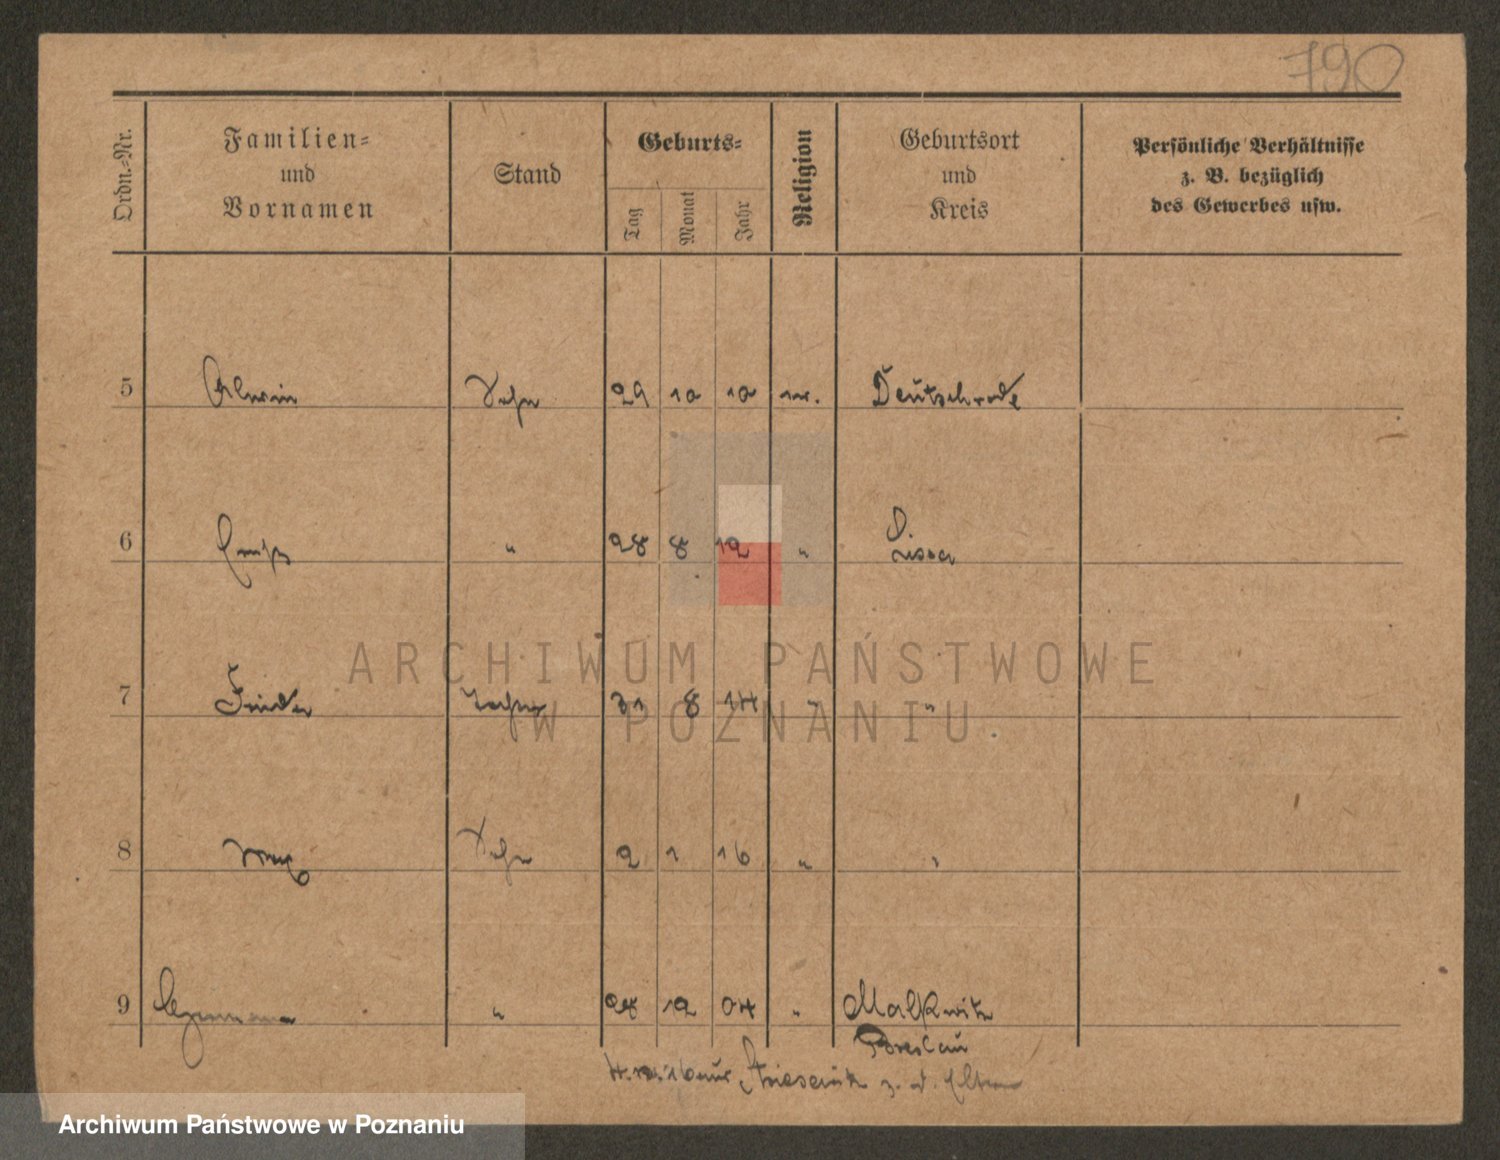 790
Ordn.-Nr.
Familien-
und
Vornamen
Stand
Geburts-
Tag
Monat
Jahr
Religion
Geburtsort
und
Kreis
Persönliche Verhältnisse
z. B. bezüglich
des Gewerbes usw.
5 Alwin Sohn 29 10 10 Deutschrode
6 " 28 8 12 " Lissa
7 Frieda Tochter 31 8 14 " "
8 Max Sohn 2 1 16 " "
9 " 28 12 04 " Malkwitz
Breslau
z. d. Eltern
ARCHIWUM PAŃSTWOWE
W POZNANIU
Archiwum Państwowe w Poznaniu